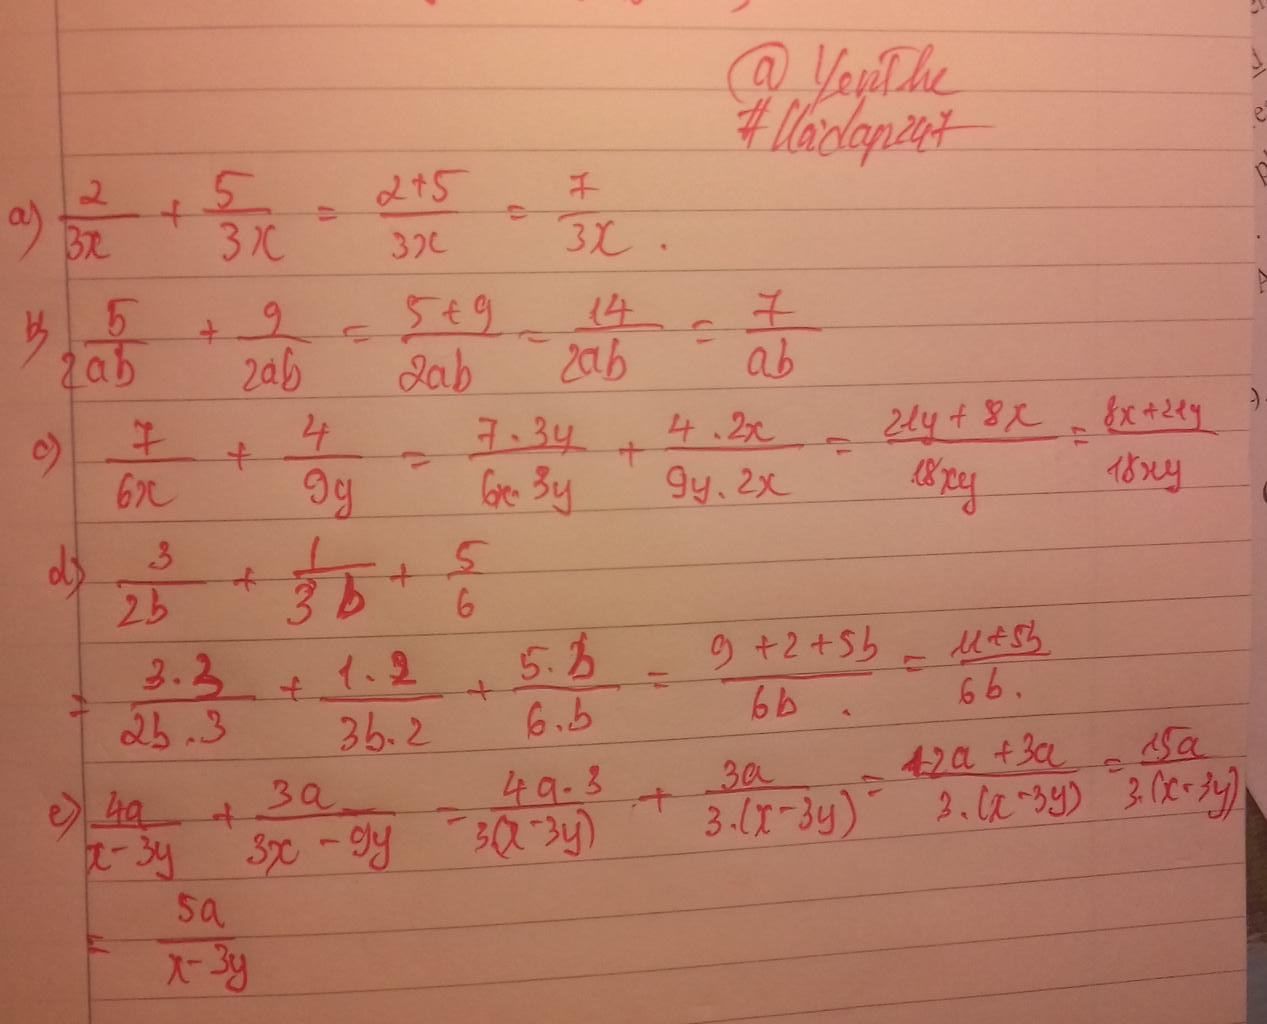 @ YenThe
a) 2/3x + 5/3x = 2+5/3x = 7/3x .
b) 5/2ab + 9/2ab = 5+9/2ab = 14/2ab = 7/ab
c) 7/6x + 4/9y = 7.3y/6x.3y + 4.2x/9y.2x = 21y+8x/18xy = 8x+21y/18xy
d) 3/2b + 1/3b + 5/6
= 3.3/2b.3 + 1.2/3b.2 + 5.b/6.b = 9+2+5b/6b . = 11+5b/6b.
e) 4a/x-3y + 3a/3x-9y = 4a.3/3(x-3y) + 3a/3.(x-3y) = 12a+3a/3.(x-3y) = 15a/3.(x-3y)
= 5a/x-3y